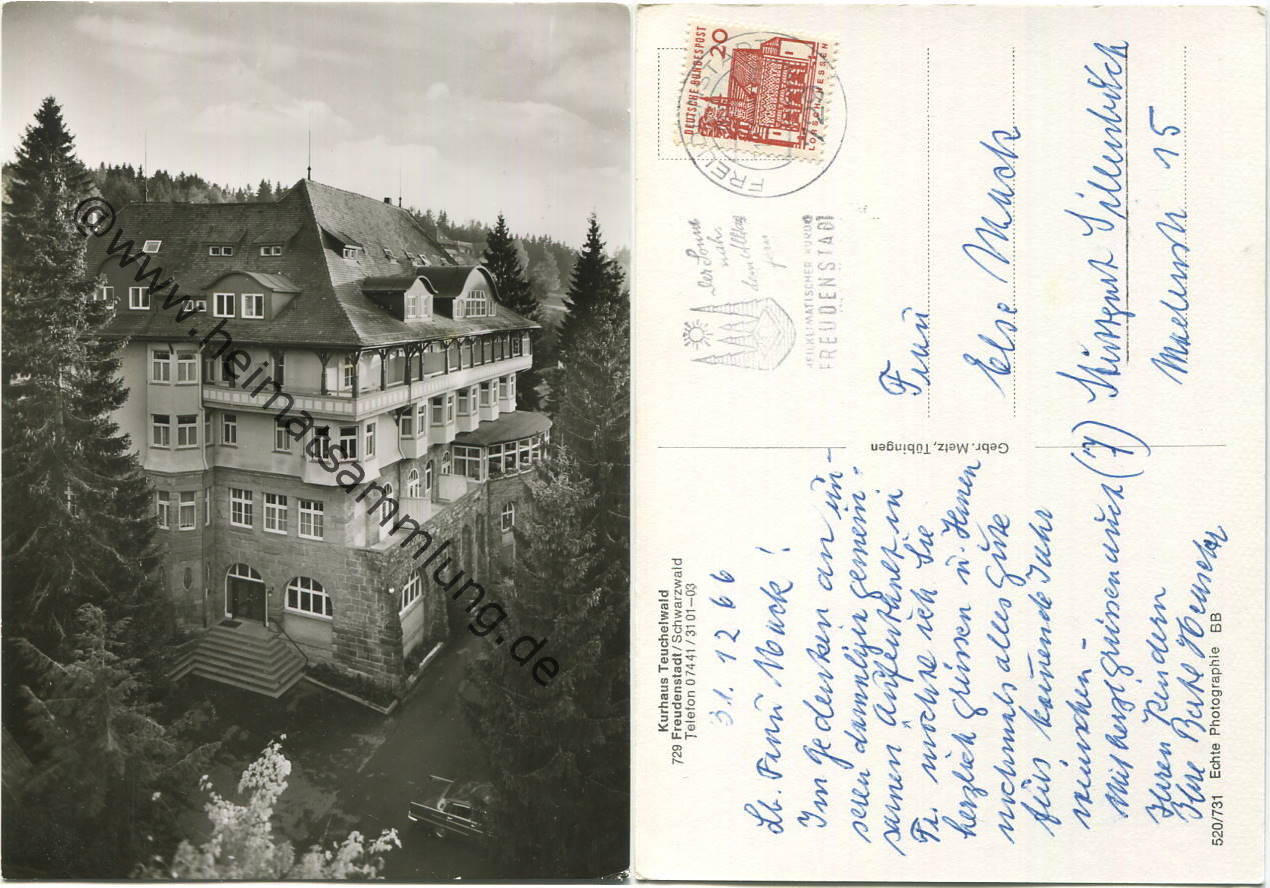 @www.heimatsammlung.de
Kurhaus Teuchelwald
729 Freudenstadt/Schwarzwald
Telefon 07441/3101-03
31.12 66
Lb. Frau Mack!
Im Gedenken an un-
seren damaligen gemein-
samen Aufenthalt in
Fr. möchte ich Sie
herzlich grüssen u. Ihnen
nochmals alles gute
fürs kommende Jahr
wünschen
Mit herzl grüssen auch
Ihren Kindern
Ihre Berte
520/731 Echte Photographie BB
Gebr. Metz, Tübingen
DEUTSCHE BUNDESPOST
20
LORSCH/HESSEN
der Sonne
näher
dem Alltag
fern
HEILKLIMATISCHER KURORT
FREUDENSTADT
Frau
Else Mack
(7) Stuttgart Sillenbuch
15